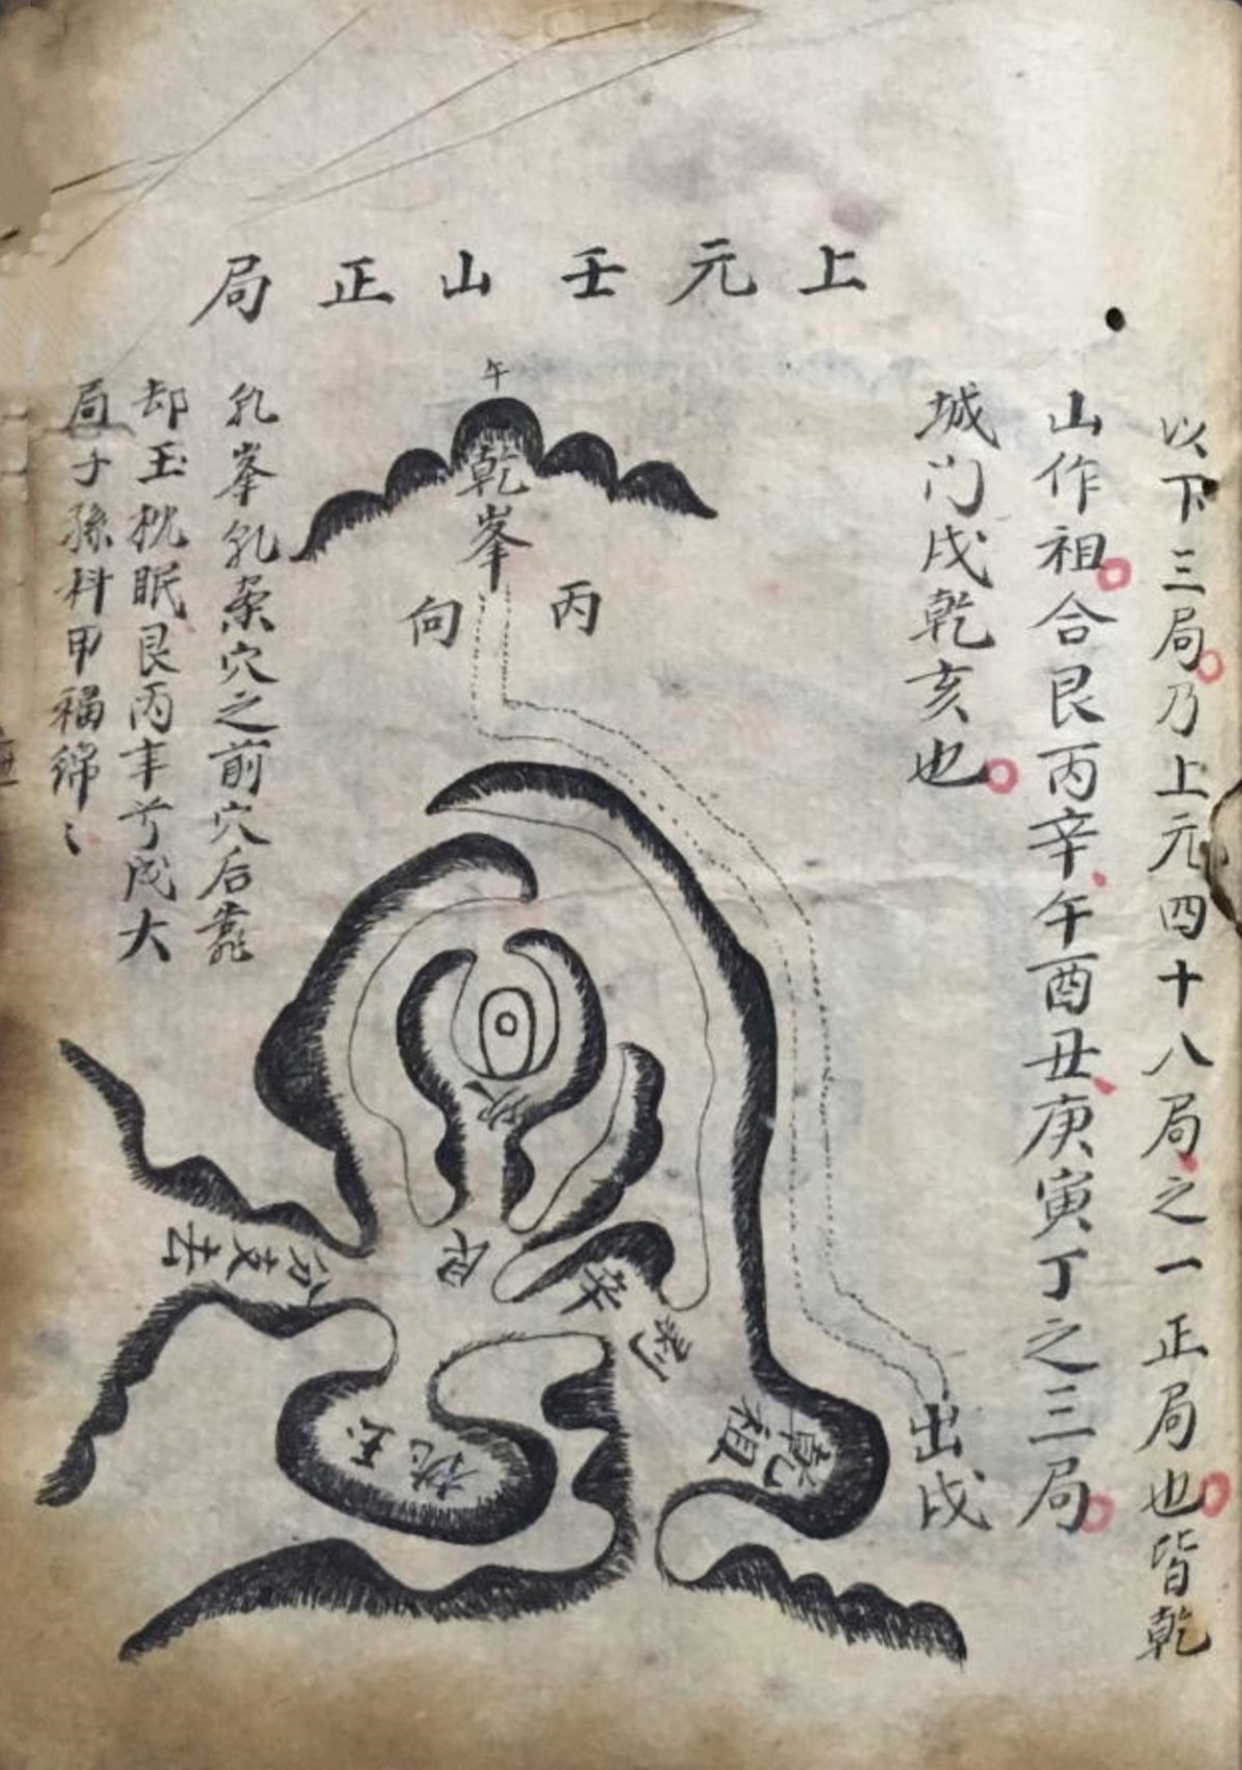 上元壬山正局
以下三局乃上元四十八局之一正局也皆乾
山作祖合艮丙辛午酉丑庚寅丁之三局
城门戌乾亥也
午
乾峯
丙
向
乳峯乳案穴之前穴后靠
却玉枕眠艮丙丰兮成大
局子孫科甲福綿〻
坎
艮
辛
剥
乾祖
出戌
分支去
玉枕